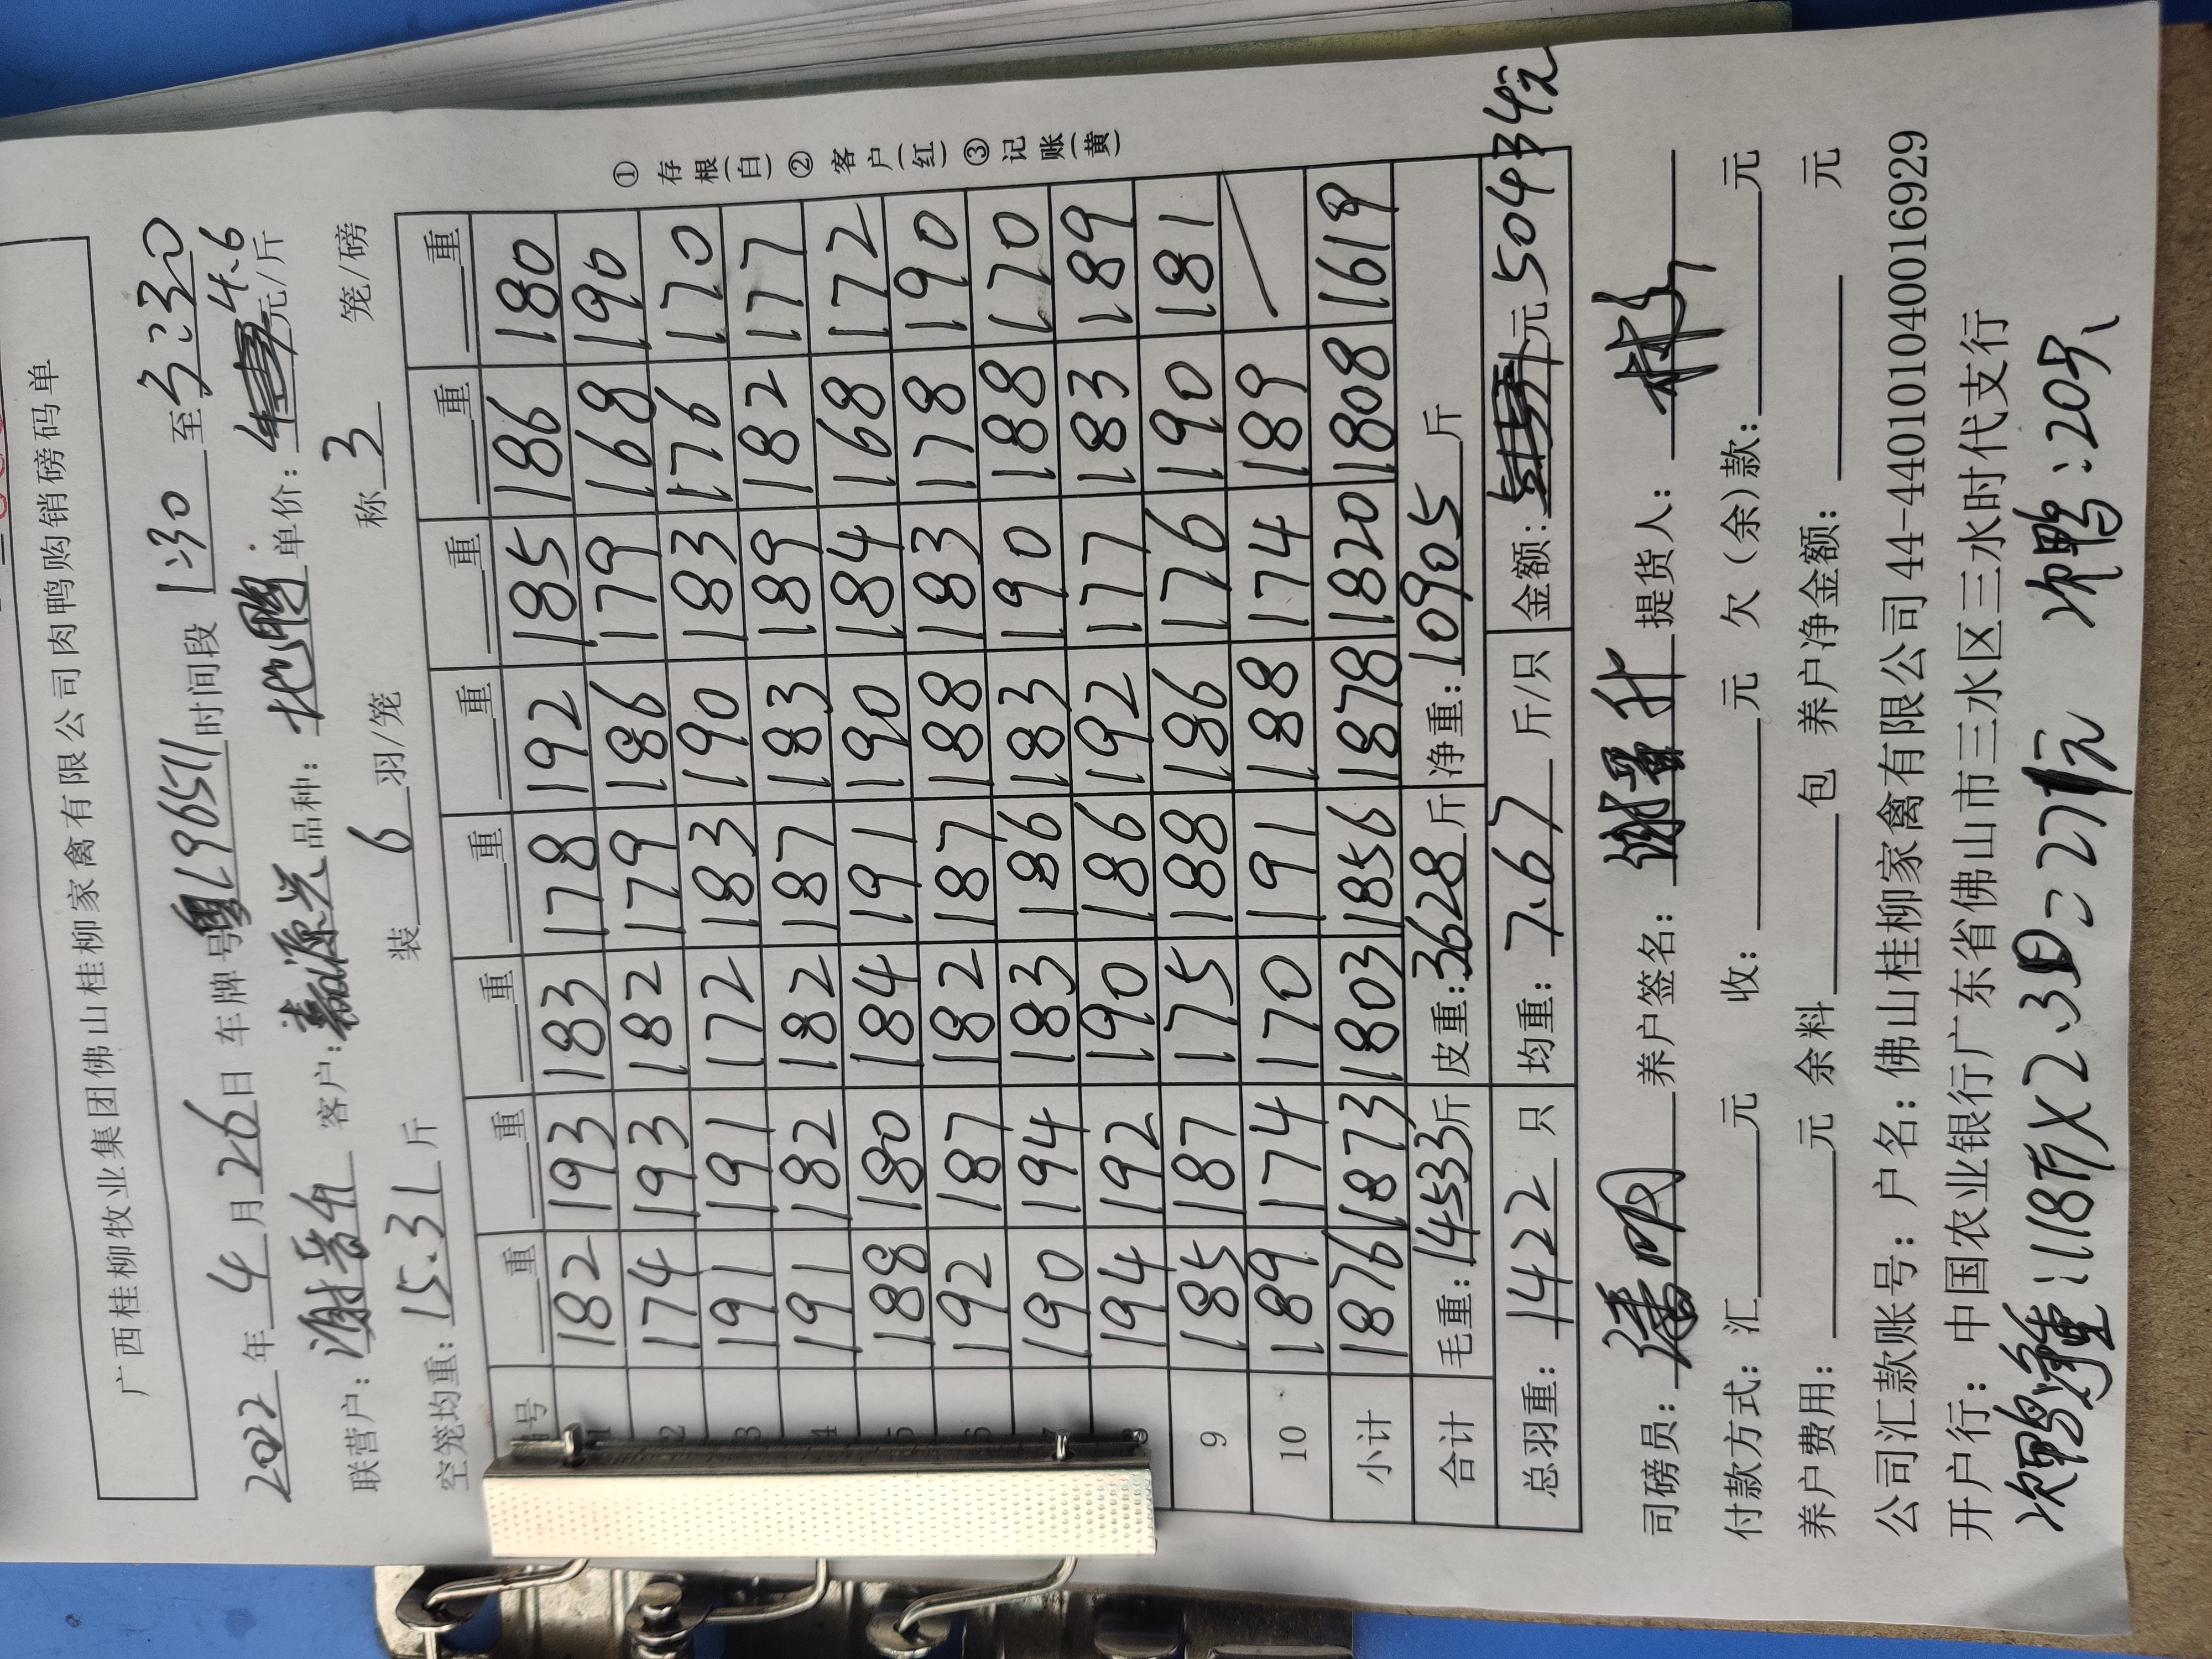 广西桂柳牧业集团佛山桂柳家禽有限公司肉鸭购销磅码单
2022年4月26日 车牌号粤L96511时间段1:30至3:30
联营户: 客户:嘉源兴 品种: 单价: 4.6元/斤
空笼均重: 15.31斤 装6羽/笼 称3笼/磅
号 重 重 重 重 重 重 重 重
1 182 193 183 178 192 185 186 180
2 174 193 182 179 186 179 168 190
3 191 191 172 183 190 183 176 170
4 191 182 182 187 183 189 182 177
5 188 180 184 191 190 184 168 172
6 192 187 182 187 188 183 178 190
7 190 194 183 186 183 190 188 170
8 194 192 190 186 192 177 183 189
9 185 187 175 188 186 176 190 181
10 189 174 170 191 188 174 189
小计 1876 1873 1803 1856 1878 1820 1808 1619
合计 毛重:14533斤 皮重:3628斤 净重:10905斤
总羽重: 1422只 均重: 7.67斤/只 金额: 元 50434元
① 存根(白) ② 客户(红) ③ 记账(黄)
司磅员: 养户签名: 提货人:
付款方式: 汇 元 收: 元 欠(余)款: 元
养户费用: 元 余料 包 养户净金额: 元
公司汇款账号: 户名: 佛山桂柳家禽有限公司 44-440101040016929
开户行: 中国农业银行广东省佛山市三水区三水时代支行
次鸭净重:118斤×2.3 = 271元 次鸭:20只